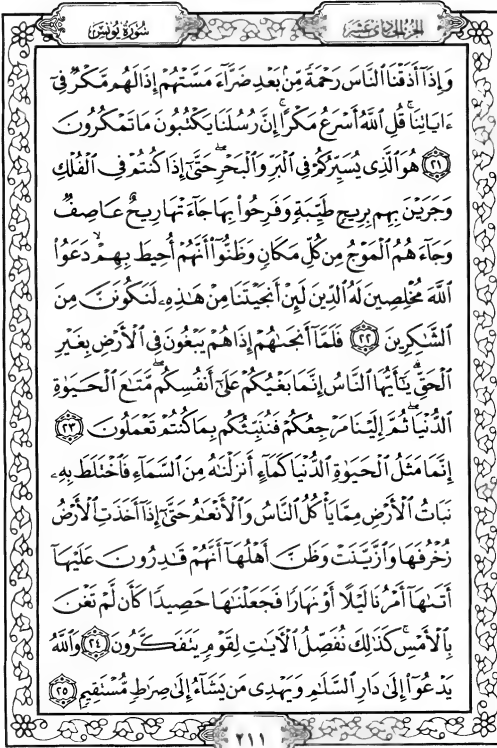 الجزء الحادي عشر
سورة يونس
وَإِذَآ أَذَقْنَا ٱلنَّاسَ رَحْمَةً مِّنۢ بَعْدِ ضَرَّآءَ مَسَّتْهُمْ إِذَا لَهُم مَّكْرٌ فِىٓ
ءَايَاتِنَا ۚ قُلِ ٱللَّهُ أَسْرَعُ مَكْرًا ۚ إِنَّ رُسُلَنَا يَكْتُبُونَ مَا تَمْكُرُونَ
٢١ هُوَ ٱلَّذِى يُسَيِّرُكُمْ فِى ٱلْبَرِّ وَٱلْبَحْرِ ۖ حَتَّىٰٓ إِذَا كُنتُمْ فِى ٱلْفُلْكِ
وَجَرَيْنَ بِهِم بِرِيحٍ طَيِّبَةٍ وَفَرِحُوا۟ بِهَا جَآءَتْهَا رِيحٌ عَاصِفٌ
وَجَآءَهُمُ ٱلْمَوْجُ مِن كُلِّ مَكَانٍ وَظَنُّوٓا۟ أَنَّهُمْ أُحِيطَ بِهِمْ ۙ دَعَوُا۟
ٱللَّهَ مُخْلِصِينَ لَهُ ٱلدِّينَ لَئِنْ أَنجَيْتَنَا مِنْ هَٰذِهِۦ لَنَكُونَنَّ مِنَ
ٱلشَّٰكِرِينَ ٢٢ فَلَمَّآ أَنجَىٰهُمْ إِذَا هُمْ يَبْغُونَ فِى ٱلْأَرْضِ بِغَيْرِ
ٱلْحَقِّ ۗ يَٰٓأَيُّهَا ٱلنَّاسُ إِنَّمَا بَغْيُكُمْ عَلَىٰٓ أَنفُسِكُم ۖ مَّتَٰعَ ٱلْحَيَوٰةِ
ٱلدُّنْيَا ۖ ثُمَّ إِلَيْنَا مَرْجِعُكُمْ فَنُنَبِّئُكُم بِمَا كُنتُمْ تَعْمَلُونَ ٢٣
إِنَّمَا مَثَلُ ٱلْحَيَوٰةِ ٱلدُّنْيَا كَمَآءٍ أَنزَلْنَٰهُ مِنَ ٱلسَّمَآءِ فَٱخْتَلَطَ بِهِۦ
نَبَاتُ ٱلْأَرْضِ مِمَّا يَأْكُلُ ٱلنَّاسُ وَٱلْأَنْعَٰمُ حَتَّىٰٓ إِذَآ أَخَذَتِ ٱلْأَرْضُ
زُخْرُفَهَا وَٱزَّيَّنَتْ وَظَنَّ أَهْلُهَآ أَنَّهُمْ قَٰدِرُونَ عَلَيْهَآ
أَتَىٰهَآ أَمْرُنَا لَيْلًا أَوْ نَهَارًا فَجَعَلْنَٰهَا حَصِيدًا كَأَن لَّمْ تَغْنَ
بِٱلْأَمْسِ ۚ كَذَٰلِكَ نُفَصِّلُ ٱلْءَايَٰتِ لِقَوْمٍ يَتَفَكَّرُونَ ٢٤ وَٱللَّهُ
يَدْعُوٓا۟ إِلَىٰ دَارِ ٱلسَّلَٰمِ وَيَهْدِى مَن يَشَآءُ إِلَىٰ صِرَٰطٍ مُّسْتَقِيمٍ ٢٥
٢١١